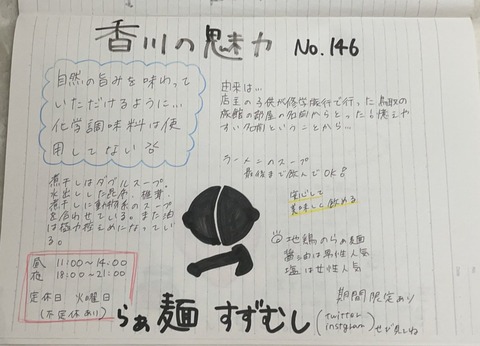 香川の魅力 No.146
自然の旨みを味わって
いただけるように…
化学調味料は使
用してない
由来は…
店主の子供が修学旅行で行った鳥取の
旅館の部屋の名前からとった
すい名前ということから…
ラーメンのスープ
最後まで飲んでOK!
安心して
美味しく飲める
煮干しはダブルスープ。
水出しした昆布、椎茸、
煮干しに動物系のスープ
を合わせている。また油
は極力控えめになってい
る。
地鶏のらぁ麺
醤油は男性人気
塩は女性人気
昼 11:00〜14:00
夜 18:00〜21:00
定休日 火曜日
(不定休あり)
らぁ麺 すずむし
期間限定あり
(twitter
instgram)ぜひ見てね